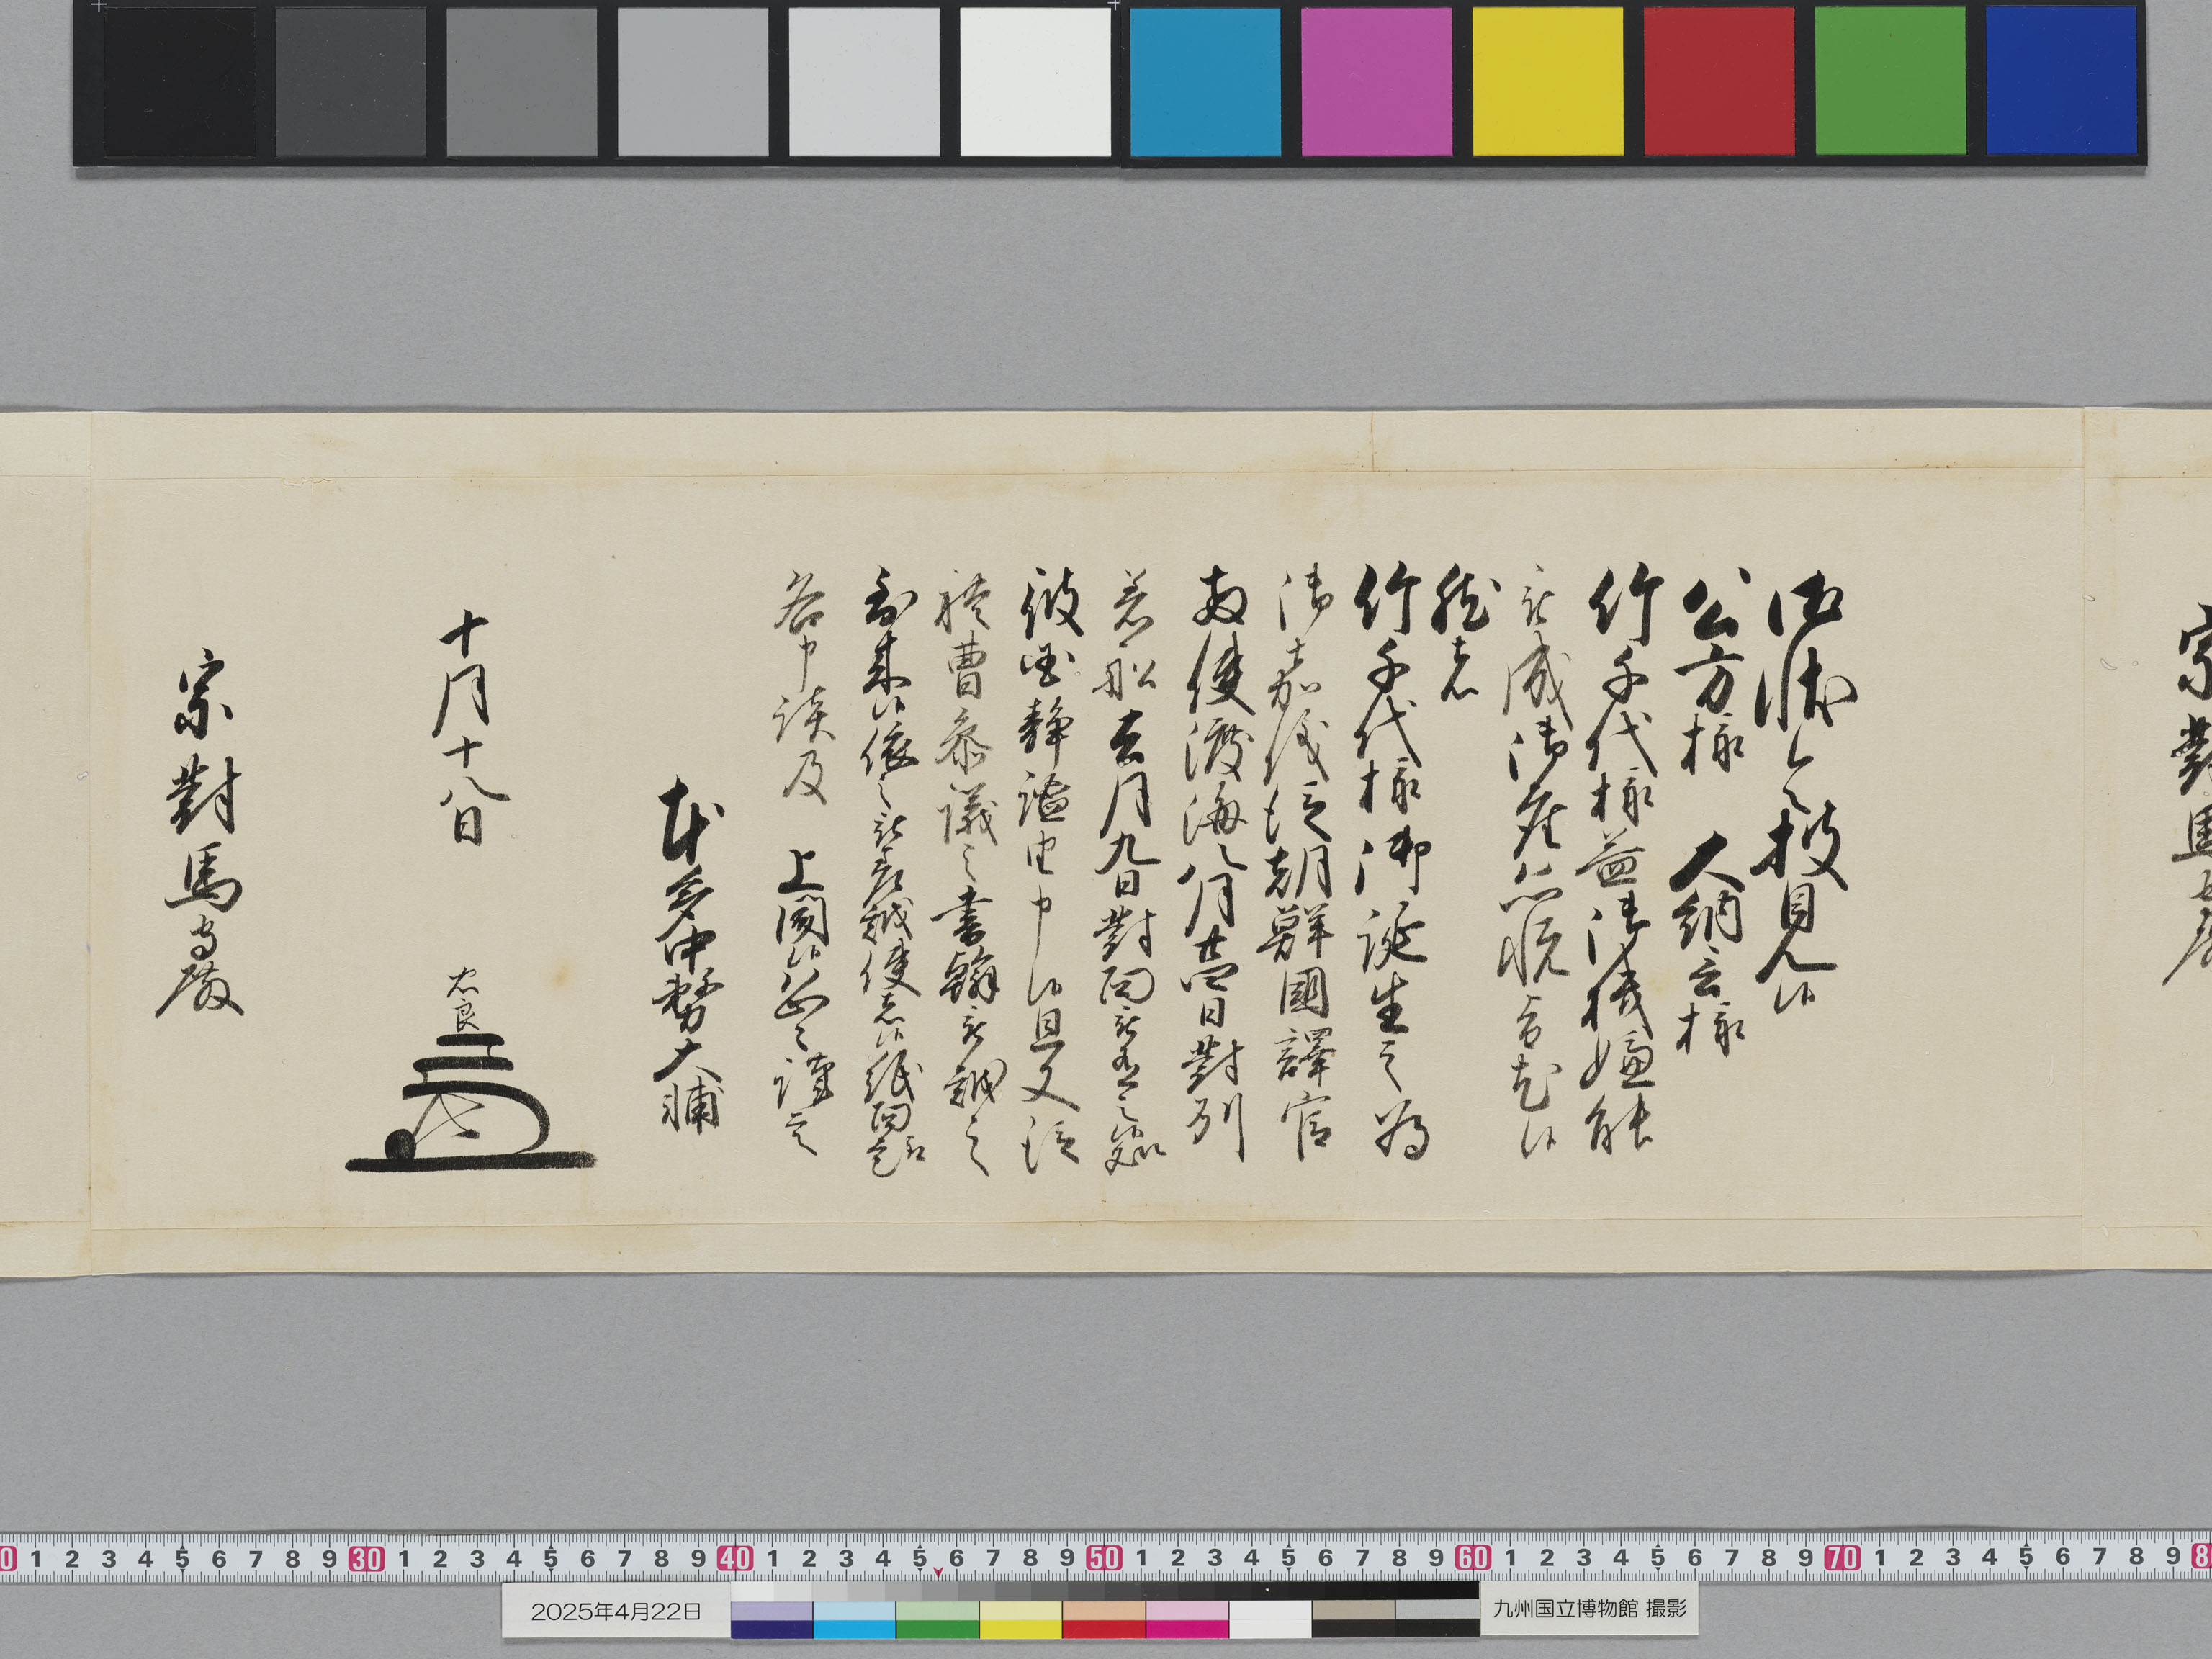 宗對馬守殿
御状令披見候
公方様　大納言様
竹千代様益御機嫌能
被成御座恐悦旨尤候
然者
竹千代様御誕生之為
御嘉儀従朝鮮國譯官
使渡海八月廿四日對州
着船去月九日對面被有之處
彼國静謐由申候且又従
禮曹参議之書翰被越之
到来候依之被差越使者候紙面
各申談及　上聞候恐々謹言
本多中務大輔
十月十八日　忠良
宗對馬守殿
0 1 2 3 4 5 6 7 8 9 30 1 2 3 4 5 6 7 8 9 40 1 2 3 4 5 6 7 8 9 50 1 2 3 4 5 6 7 8 9 60 1 2 3 4 5 6 7 8 9 70 1 2 3 4 5 6 7 8 9 8
2025年4月22日
九州国立博物館 撮影